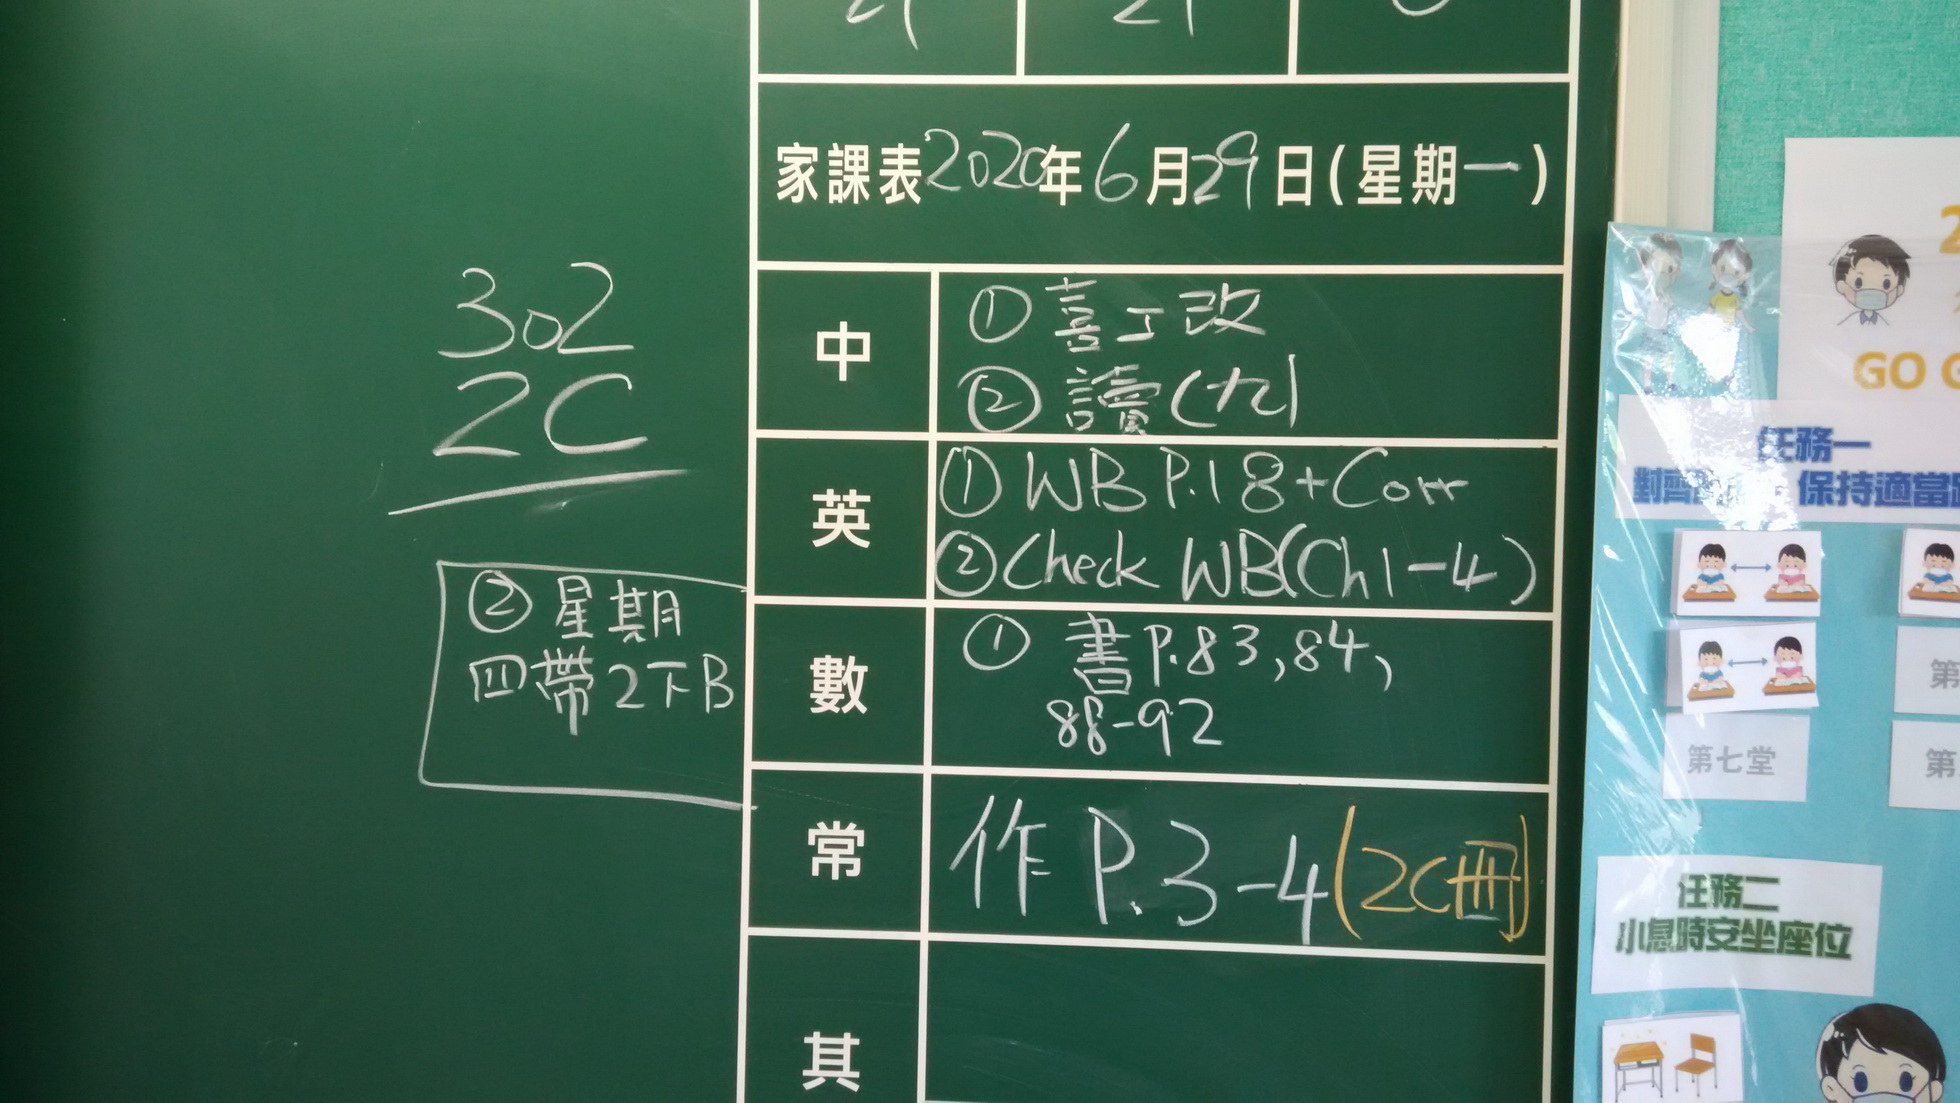 家課表2020年6月29日(星期一)
302
2C
中
① 喜工改
② 讀(九)
英
① WB P.18+Corr
② Check WB(Ch1-4)
② 星期
四帶2下B
數
① 書P.83,84,
88-92
常
作 P.3-4(2C冊)
其
GO
任務一
保持適當
第七堂
第
第
任務二
小息時安坐座位